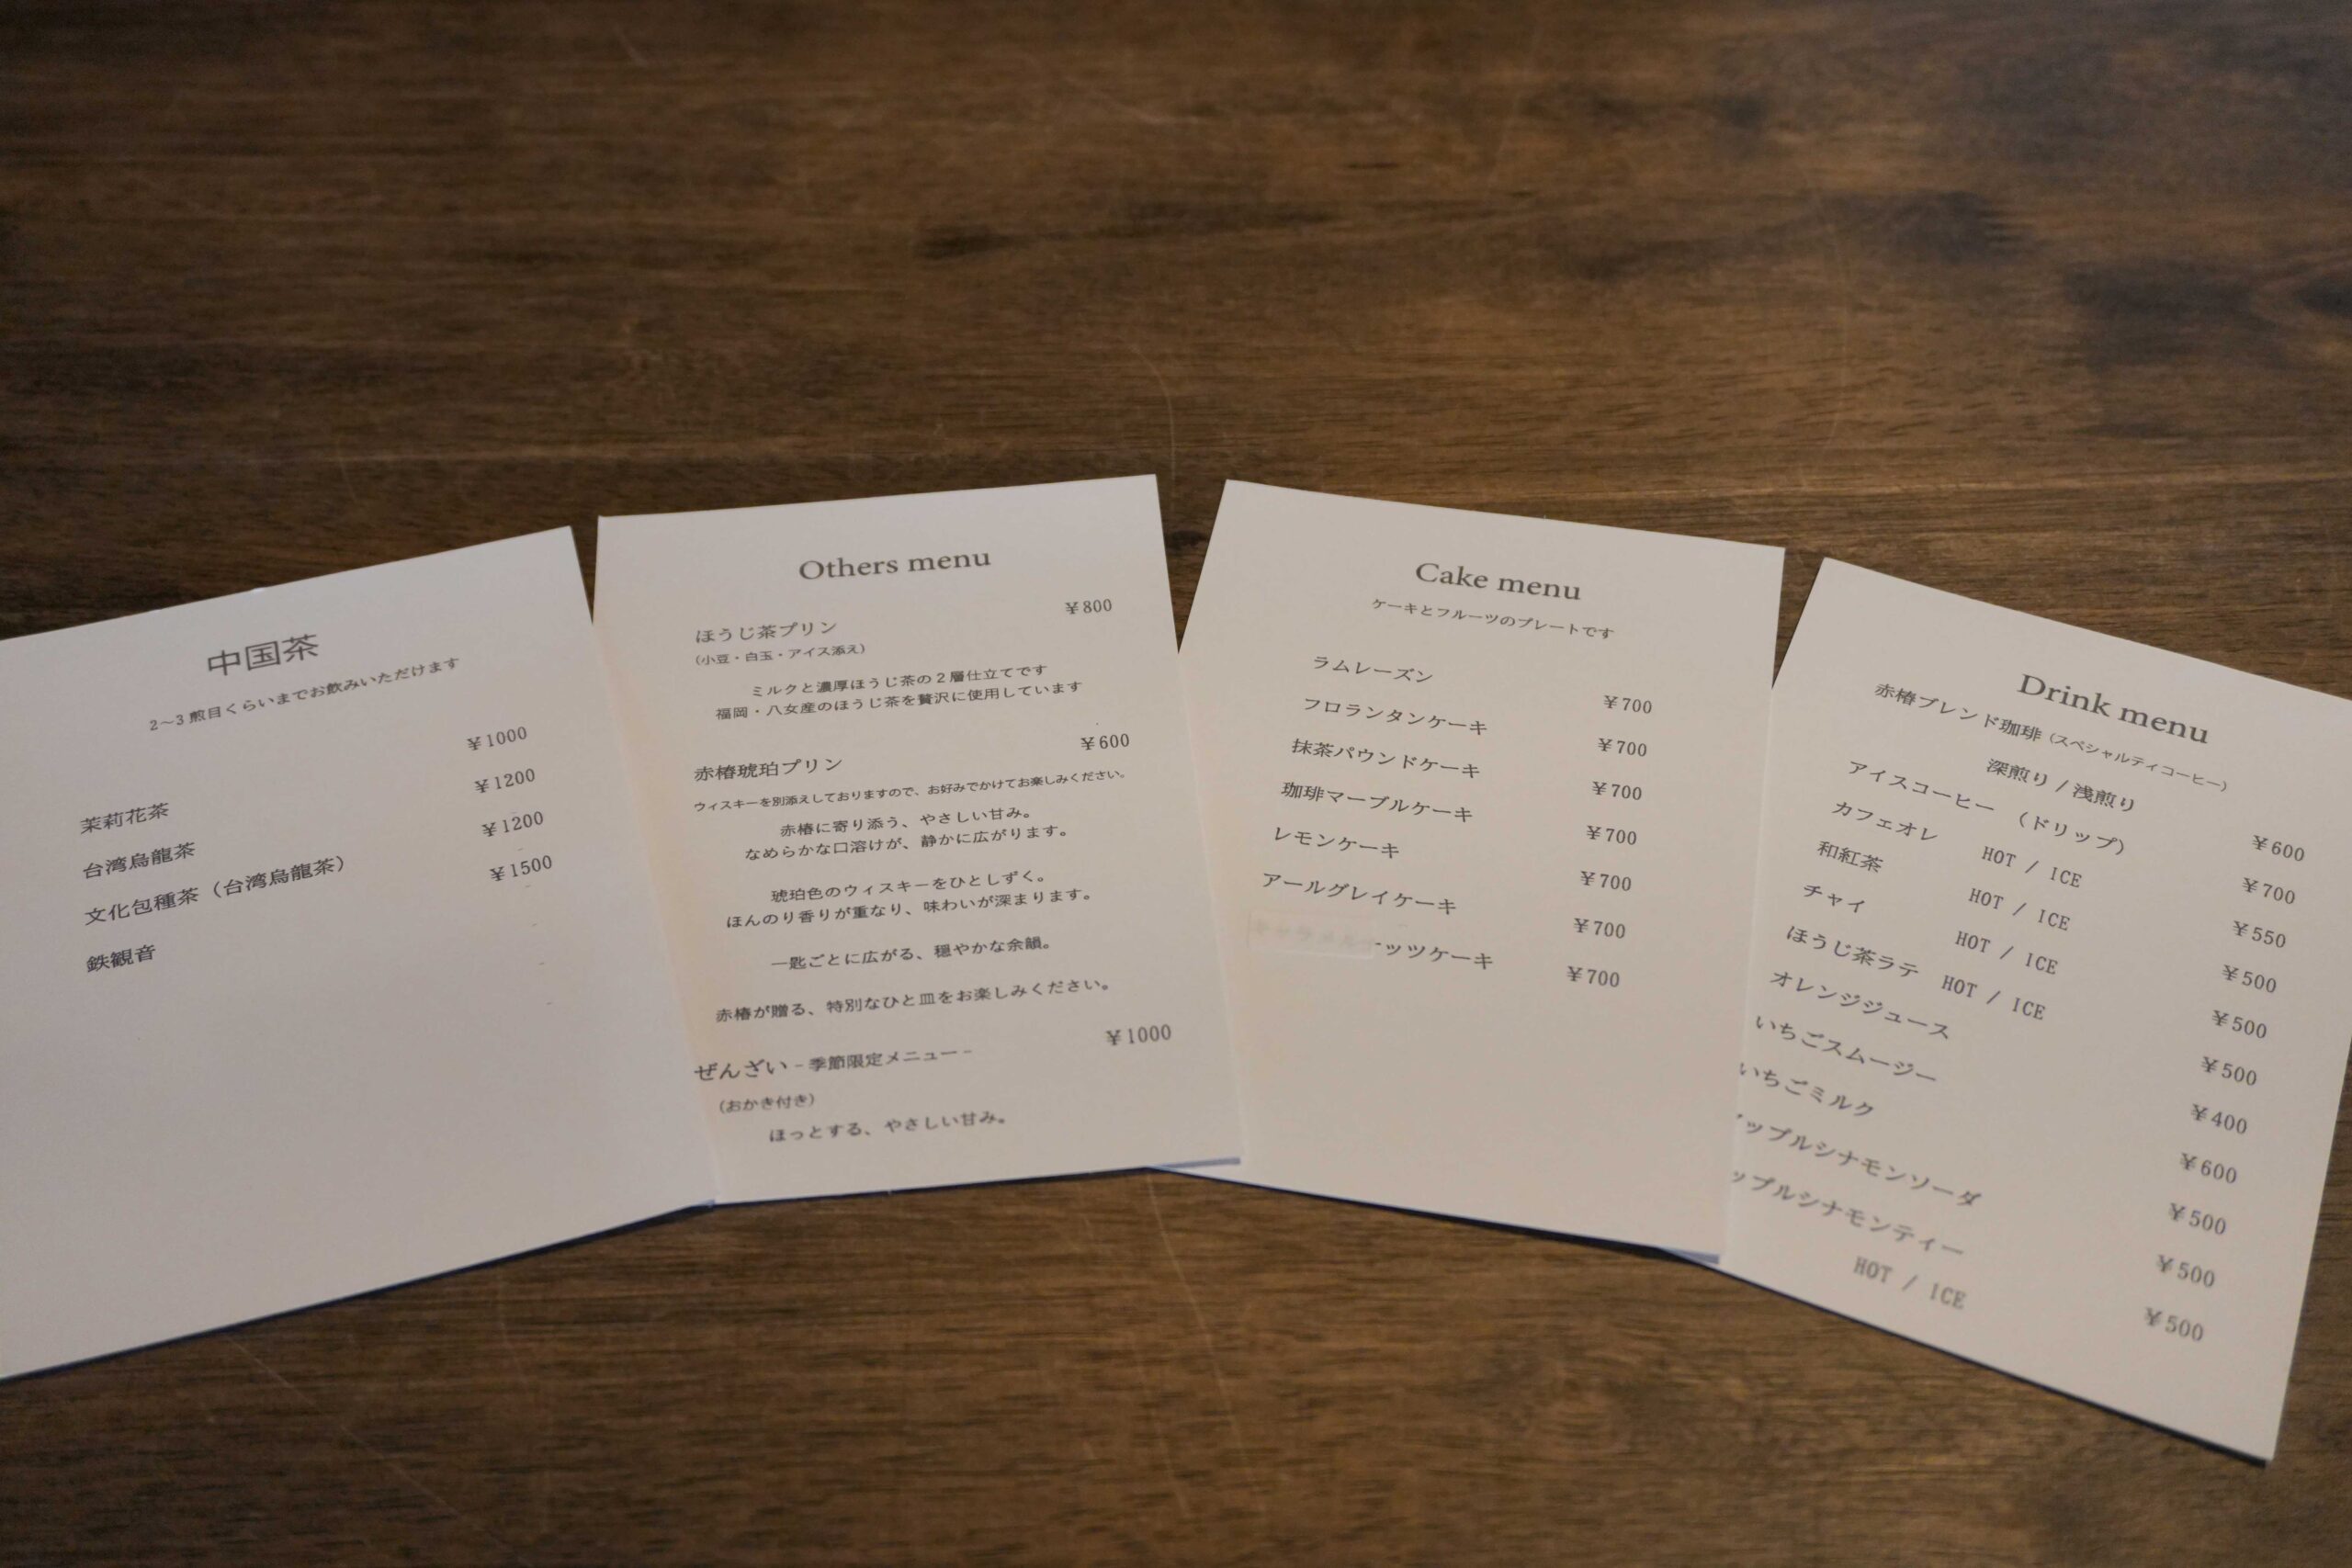 中国茶
2～3煎目くらいまでお飲みいただけます
茉莉花茶 ¥1000
台湾烏龍茶 ¥1200
文化包種茶（台湾烏龍茶） ¥1200
鉄観音 ¥1500
Others menu
ほうじ茶プリン ¥800
（小豆・白玉・アイス添え）
ミルクと濃厚ほうじ茶の2層仕立てです
福岡・八女産のほうじ茶を贅沢に使用しています
赤椿琥珀プリン ¥600
ウィスキーを別添えしておりますので、お好みでかけてお楽しみください。
赤椿に寄り添う、やさしい甘み。
なめらかな口溶けが、静かに広がります。
琥珀色のウィスキーをひとしずく。
ほんのり香りが重なり、味わいが深まります。
一匙ごとに広がる、穏やかな余韻。
赤椿が贈る、特別なひと皿をお楽しみください。
ぜんざい -季節限定メニュー- ¥1000
（おかき付き）
ほっとする、やさしい甘み。
Cake menu
ケーキとフルーツのプレートです
ラムレーズン ¥700
フロランタンケーキ ¥700
抹茶パウンドケーキ ¥700
珈琲マーブルケーキ ¥700
レモンケーキ ¥700
アールグレイケーキ ¥700
ッツケーキ ¥700
Drink menu
赤椿ブレンド珈琲（スペシャルティコーヒー）
深煎り / 浅煎り ¥600
アイスコーヒー （ドリップ） ¥700
カフェオレ HOT / ICE ¥550
和紅茶 HOT / ICE ¥500
チャイ HOT / ICE ¥500
ほうじ茶ラテ HOT / ICE ¥500
オレンジジュース ¥400
いちごスムージー ¥600
いちごミルク ¥500
ップルシナモンソーダ ¥500
ップルシナモンティー ¥500
HOT / ICE